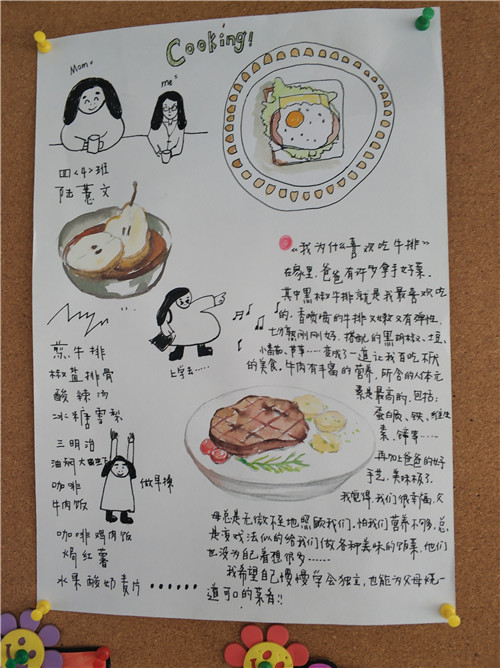 Cooking!
Mom.
me
四<4>班
陆薏文
煎牛排
椒盐排骨
酸辣汤
冰糖雪梨
三明治
油焖大
咖啡
牛肉饭
咖啡鸡肉饭
焗红薯
水果酸奶麦片 ······
上学去……
做早操
《我为什么喜欢吃牛排》
在家里，爸爸有许多拿手好菜。
其中黑椒牛排就是我最喜欢吃
的。香喷喷的牛排又嫩又有弹性，
七分熟刚刚好。搭配的黑胡椒、土豆、
小番茄、芦笋……变成了一道让我百吃不厌
的美食。牛肉有丰富的营养，所含的人体元
素是最高的，包括：
蛋白质、铁、维生
素、锌等……
再加上爸爸的好
手艺，美味极了。
我觉得，我们很幸福，父
母总是无微不至地照顾我们，怕我们营养不够，总
是变戏法似的给我们做各种美味的饭菜，他们
也没为自己着想很多……
我希望自己慢慢学会独立，也能为父母烧一
道可口的菜肴!!